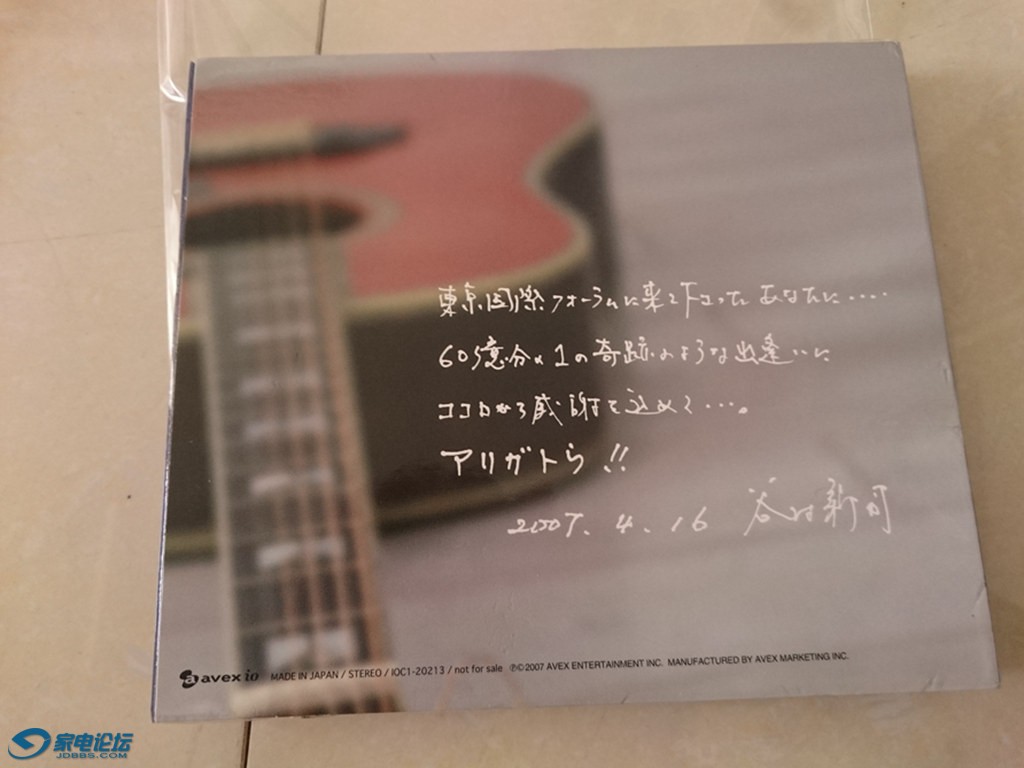 東京国際フォーラムに来て下さったあなたに....
60億分の1の奇跡のような出逢いに
ココロから感謝を込めて...。
アリガトう!!
2007. 4. 16 谷村新司
avex io MADE IN JAPAN / STEREO / IOC1-20213 / not for sale ℗©2007 AVEX ENTERTAINMENT INC. MANUFACTURED BY AVEX MARKETING INC.
家电论坛
JDBBS.COM